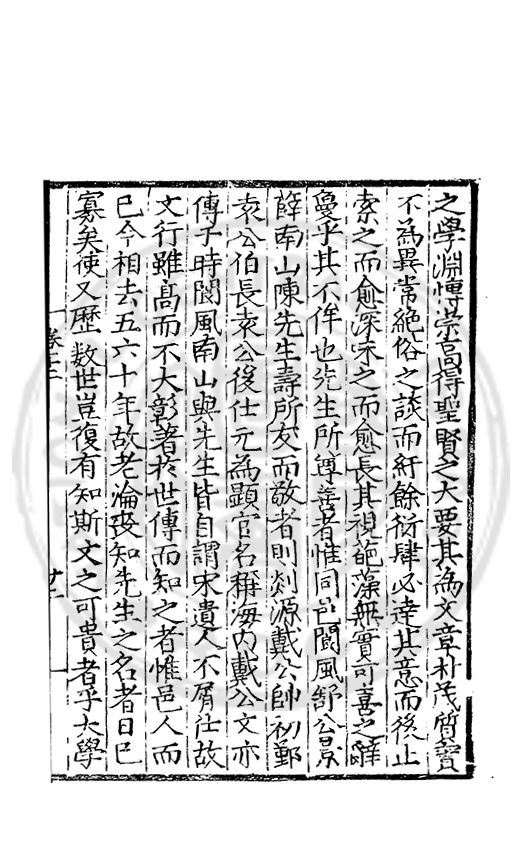 之學淵博崇高得聖賢之大要其為文章朴茂質實
不為異常絕俗之談而紆餘衍肆必達其意而後止
索之而愈深味之而愈長其視葩藻無實可喜之辭
敻乎其不侔也先生所尊善者惟同邑閬風舒公景
薛南山陳先生壽所友而敬者則剡源戴公帥初鄞
袁公伯長袁公後仕元為顯官名稱海內戴公文亦
傳于時閬風南山與先生皆自謂宋遺人不屑仕故
文行雖高而不大彰著於世傳而知之者惟邑人而
已今相去五六十年故老淪喪知先生之名者日已
寡矣使又歷數世豈復有知斯文之可貴者乎大學
卷十二
廿二